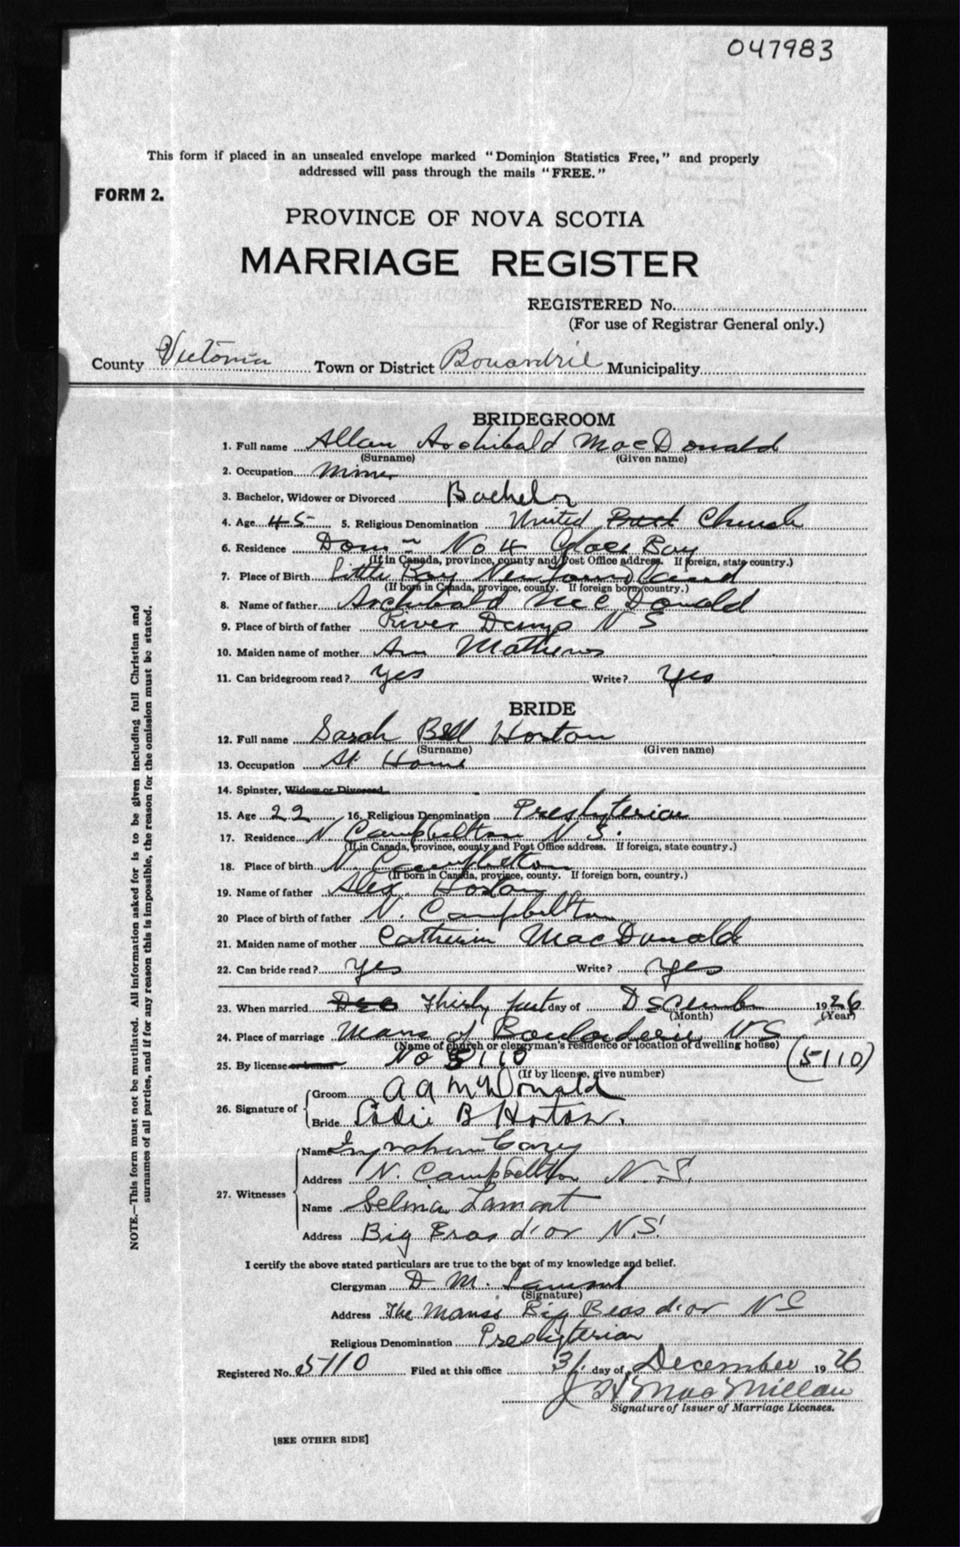 047983
This form if placed in an unsealed envelope marked "Dominion Statistics Free," and properly
addressed will pass through the mails "FREE."
FORM 2.
PROVINCE OF NOVA SCOTIA
MARRIAGE REGISTER
REGISTERED No.
(For use of Registrar General only.)
County Victoria Town or District Municipality
BRIDEGROOM
1. Full name Allan Archibald MacDonald
(Surname) (Given name)
2. Occupation Miner
3. Bachelor, Widower or Divorced Bachelor
4. Age 45 5. Religious Denomination United Church
6. Residence Dom'n No 4 Glace Bay
(If in Canada, province, county and Post Office address. If foreign, state country.)
7. Place of Birth Little Bay Newfoundland
(If born in Canada, province, county. If foreign born, country.)
8. Name of father Archibald McDonald
9. Place of birth of father River N S
10. Maiden name of mother Ann Mathews
11. Can bridegroom read? Yes Write? Yes
BRIDE
12. Full name Sarah Bell Horton
(Surname) (Given name)
13. Occupation At Home
14. Spinster, Widow or Divorced
15. Age 22 16. Religious Denomination Presbyterian
17. Residence N Campbelton N S.
(If in Canada, province, county and Post Office address. If foreign, state country.)
18. Place of birth N. Campbelton
(If born in Canada, province, county. If foreign born, country.)
19. Name of father Alex. Horton
20 Place of birth of father N. Campbelton
21. Maiden name of mother Catherin MacDonald
22. Can bride read? Yes Write? Yes
23. When married Dec Thirty first day of December 1926
(Month) (Year)
24. Place of marriage Manse of Boularderie N S
(Name of church or clergyman's residence or location of dwelling house)
25. By license or banns No 5110 (5110)
(If by license, give number)
26. Signature of
Groom A A McDonald
Bride B Horton.
27. Witnesses
Name
Address N. Campbellton N.S.
Name Selina Lamont
Address Big Bras d'or N.S.
I certify the above stated particulars are true to the best of my knowledge and belief.
Clergyman D. M. Lamont
(Signature)
Address The Manse Big Bras d'or N S
Religious Denomination Presbyterian
Registered No. 5110 Filed at this office 31 day of December 1926
J H MacMillan
Signature of Issuer of Marriage Licenses.
[SEE OTHER SIDE]
NOTE.—This form must not be mutilated. All information asked for is to be given including full Christian and
surnames of all parties, and if for any reason this is impossible, the reason for the omission must be stated.